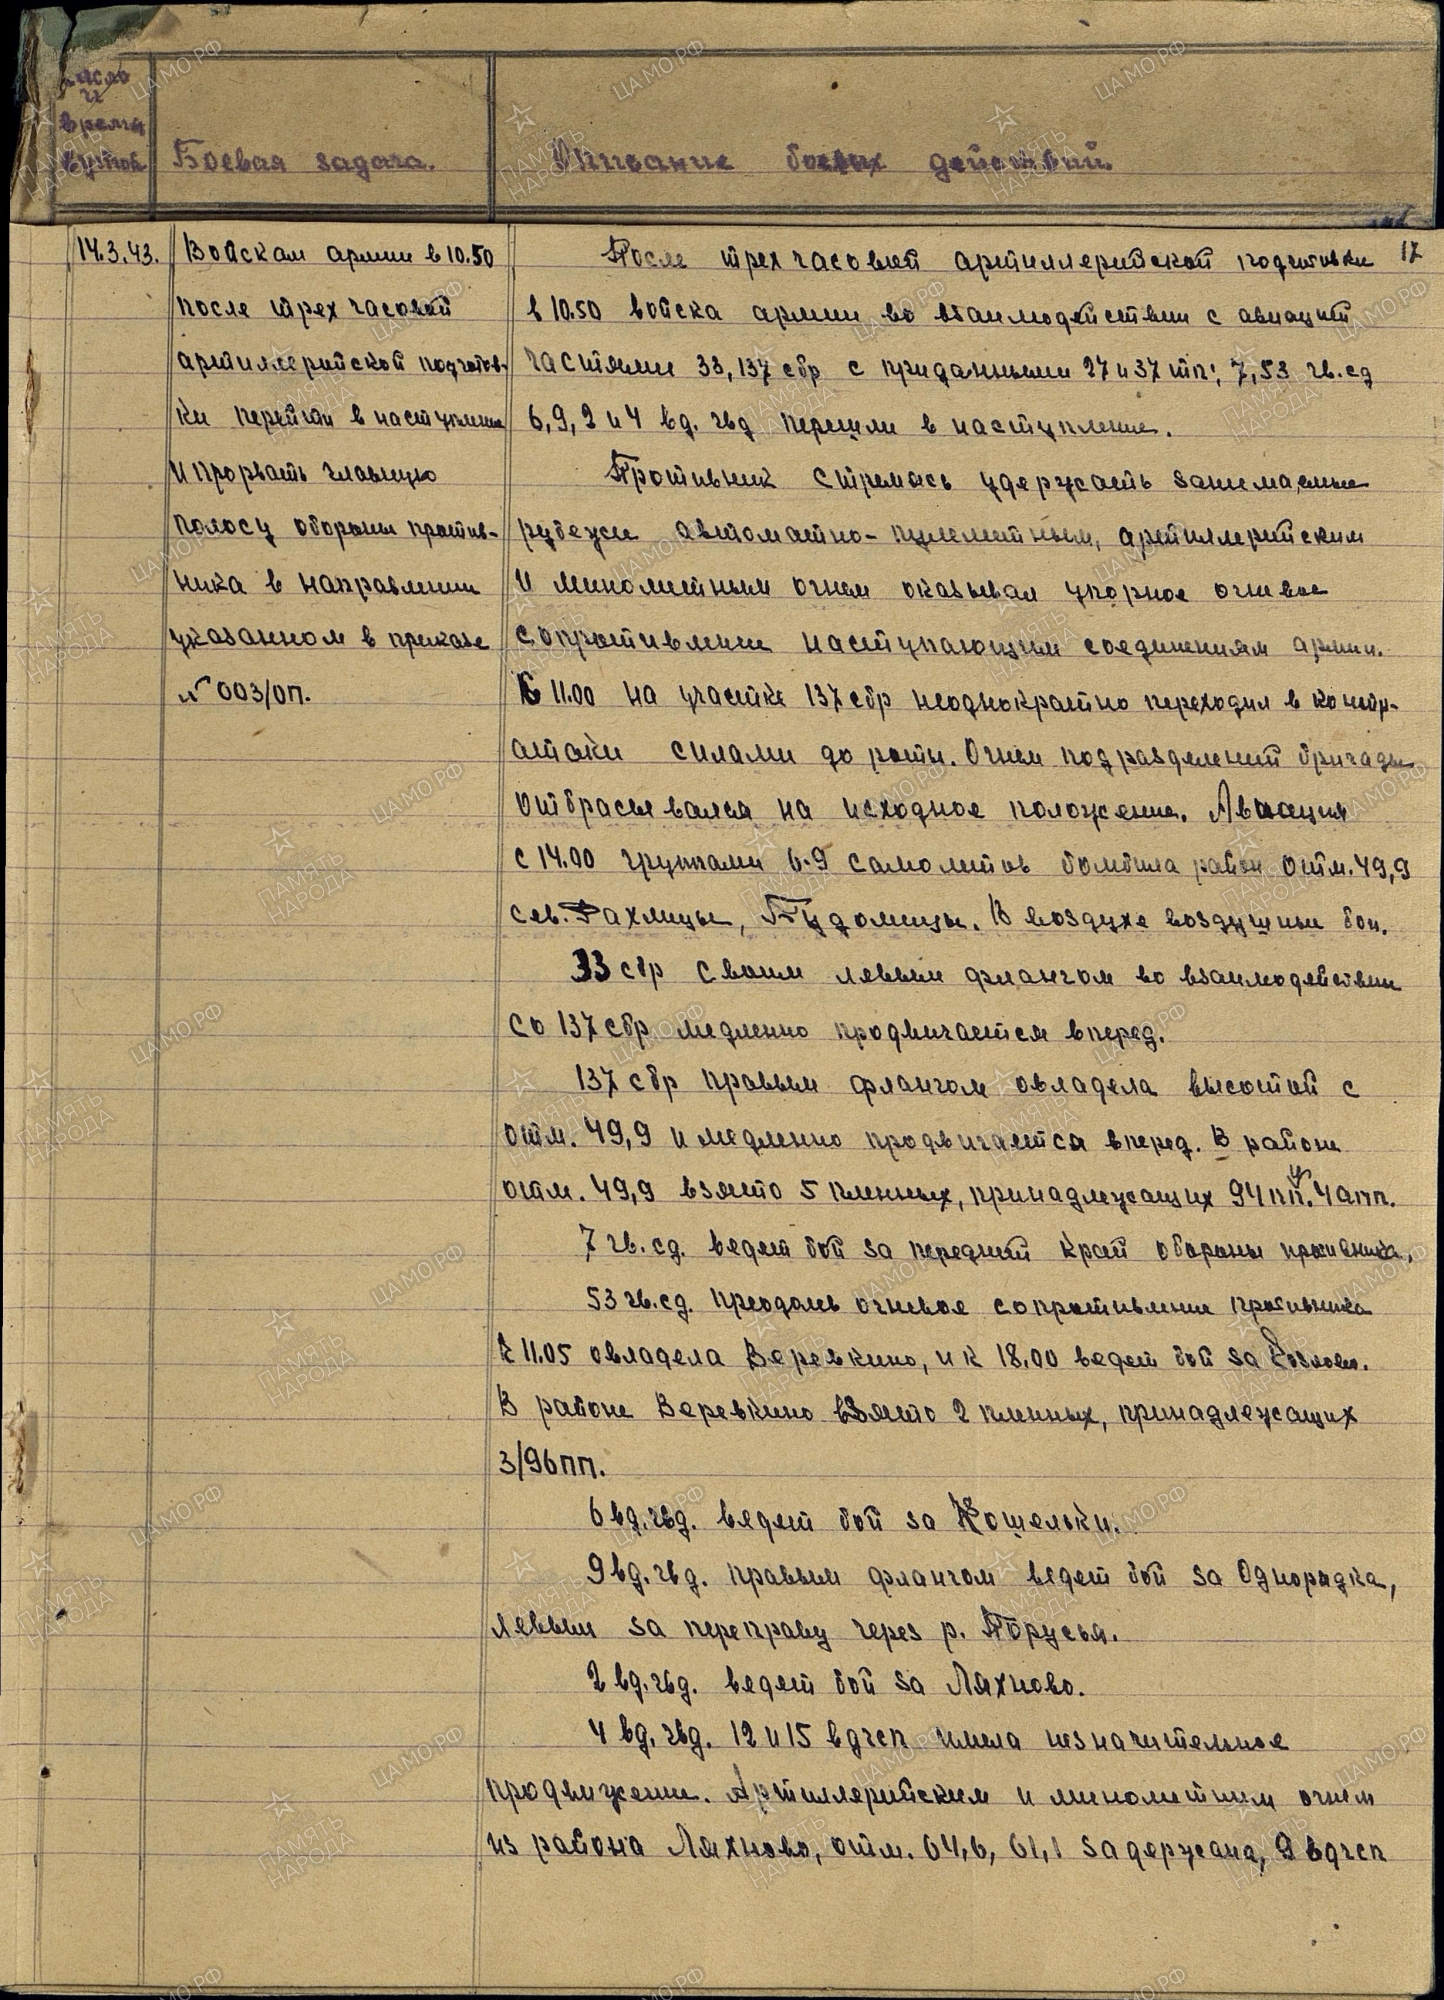 число
и
время
суток
Боевая задача.
Описание боевых действий.
17
14.3.43.
Войскам армии в 10.50
после трех часовой
артиллерийской подготов-
ки перейти в наступление
и прорвать главную
полосу обороны против-
ника в направлении
указанном в приказе
№ 003/ОП.
После трех часовой артиллерийской подготовки
в 10.50 войска армии во взаимодействии с авиацией
частями 33, 137 сбр с приданными 27 и 37 тп; 7, 53 гв.сд
6, 9, 2 и 4 вд. гвд перешли в наступление.
Противник стремясь удержать занимаемые
рубежи автоматно-пулеметным, артиллерийским
и минометным огнем оказывал упорное огневое
сопротивление наступающим соединениям армии.
В 11.00 на участке 137 сбр неоднократно переходил в контр-
атаки силами до роты. Огнем подразделений бригады
отбрасывался на исходное положение. Авиация
с 14.00 группами 6-9 самолетов бомбила район отм. 49,9
сев. Рахлицы, Будомицы. В воздухе воздушные бои.
33 сбр своим левым флангом во взаимодействии
со 137 сбр медленно продвигается вперед.
137 сбр правым флангом овладела высотой с
отм. 49,9 и медленно продвигается вперед. В районе
отм. 49,9 взято 5 пленных, принадлежащих 94 пп. и 4 апп.
7 гв.сд. ведет бой за передний край обороны противника,
53 гв.сд. преодолев огневое сопротивление противника
к 11.05 овладела Веревкино, и к 18.00 ведет бой за Козлово.
В районе Веревкино взято 2 пленных, принадлежащих
3/96пп.
6 вд. гвд. ведет бой за Кошельки.
9 вд. гвд. правым флангом ведет бой за Однорядка,
левым за переправу через р. Порусья.
2 вд. гвд. ведет бой за Ляхново.
4 вд. гвд. 12 и 15 вдгсп имела незначительное
продвижение. Артиллерийским и минометным огнем
из района Ляхново, отм. 64,6, 61,1 задержана, 9 вдгсп
ЦА МО РФ
ПАМЯТЬ НАРОДА